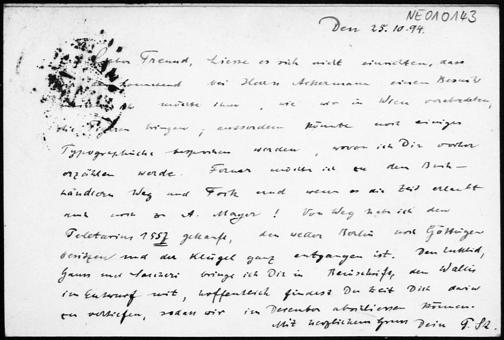 NE010143
Den 25.10.94.
Lieber Freund, Liesse es sich nicht einrichten, dass
bei Herrn Ackermann einen Besuch
möchte ihm, wie wir in Wien
bringen, ausserdem könnte noch einiges
Typographische besprochen werden, wovon ich Dir vorher
erzählen werde. Ferner möchte ich zu den Buch-
händlern Weg und Fock und wenn es die Zeit erlaubt
auch noch zu A. Mayer! Von Weg habe ich den
Peletarius 1557 gekauft, den weder Berlin noch Göttingen
besitzen und der Klügel ganz entgangen ist. Den Euklid,
Gauss und Saccheri bringe ich Dir in Reinschrift, den Wallis
im Entwurf mit, hoffentlich findest Du Zeit Dich darin
zu vertiefen, sodass wir im December abschliessen können.
Mit herzlichem Gruss Dein P. St.